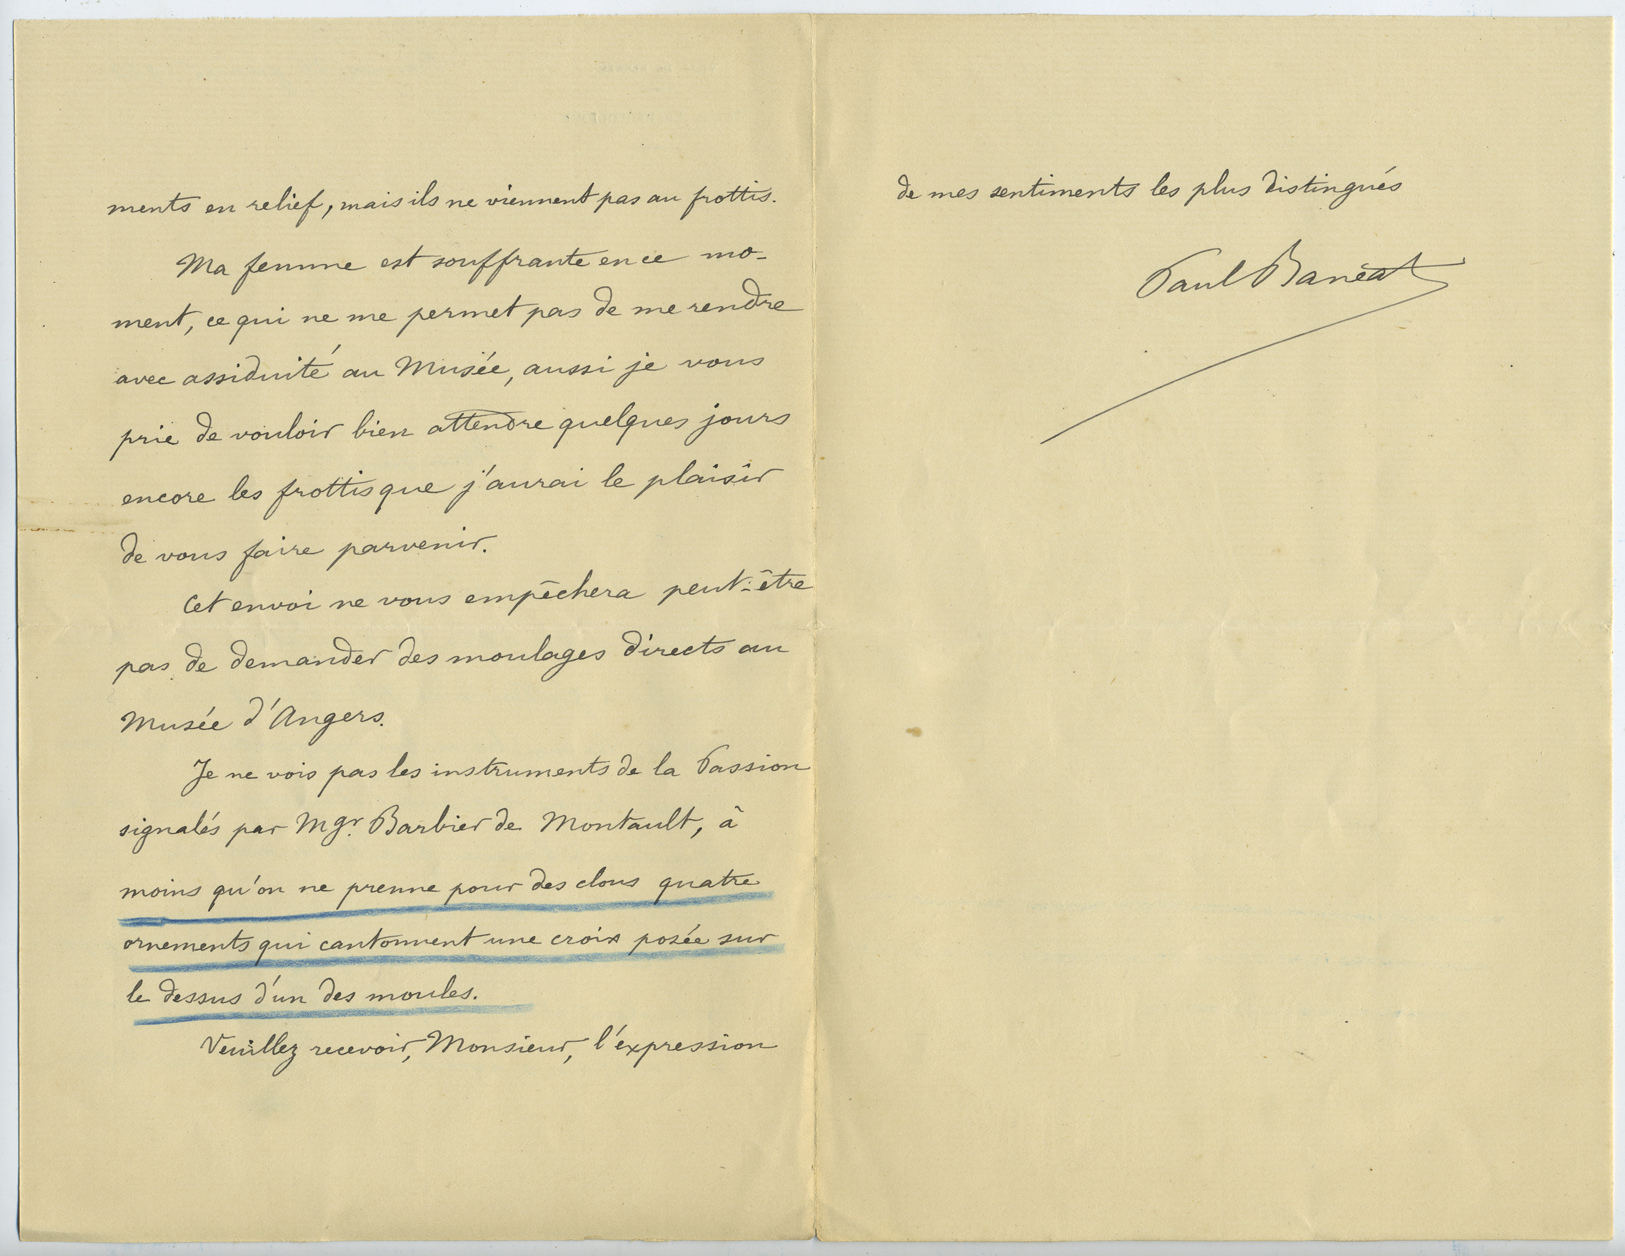 ments en relief, mais ils ne viennent pas au frottis.
Ma femme est souffrante en ce mo-
ment, ce qui ne me permet pas de me rendre
avec assiduité au Musée, aussi je vous
prie de vouloir bien attendre quelques jours
encore les frottis que j'aurai le plaisir
de vous faire parvenir.
Cet envoi ne vous empêchera peut-être
pas de demander des moulages directs au
Musée d'Angers.
Je ne vois pas les instruments de la Passion
signalés par Mgr. Barbier de Montault, à
moins qu'on ne prenne pour des clous quatre
ornements qui cantonnent une croix posée sur
le dessus d'un des moules.
Veuillez recevoir, Monsieur, l'expression
de mes sentiments les plus distingués
Paul Banéat